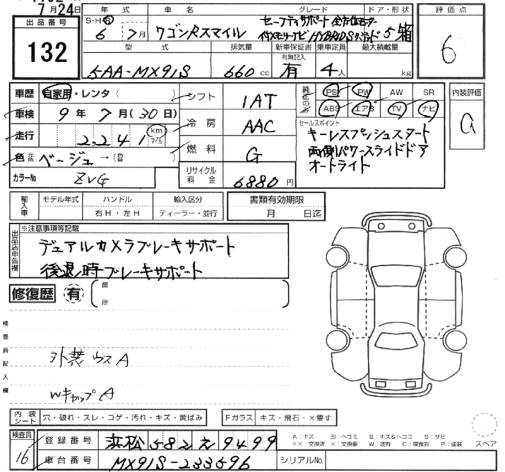 7月24日
年 式 車 名 グレード ドア・形状 評 価 点
出品番号 132
S・H・R 6 年 7 月 ワゴンRスマイル セーフティサポート 全方位モニター 5 箱
HYBRID
型 式 排気量 新車保証書 乗車定員 最大積載量
有無記入
5AA-MX91S 660 cc 有 4 人 kg
6
車歴 自家用・レンタ シフト 1AT PS PW AW SR 内装評価
車検 9 年 7 月 (30 日) 冷房 AAC ABS エアB TV ナビ a
走行 2241 km マイル セールスポイント
キーレスプッシュスタート
色 ベージュ → 燃料 G 両側パワースライドドア
オートライト
カラーNo ZVG リサイクル料金 6880 円
輸入車 モデル年式 ハンドル 輸入区分 書類有効期限
年 右H・左H ディーラー・並行 月 日迄
※注意事項等記載
デュアルカメラブレーキサポート
後退時ブレーキサポート
修復歴 有 箇所
検査員記入欄
外装ウスA
WキャップA
内装シート 穴・破れ・スレ・コゲ・汚れ・キズ・黄ばみ Fガラス キズ・飛石・×要す
検査員 16 登録番号 浜松 582 え 9499
車台番号 MX91S-233596 シリアルNo.
スペア